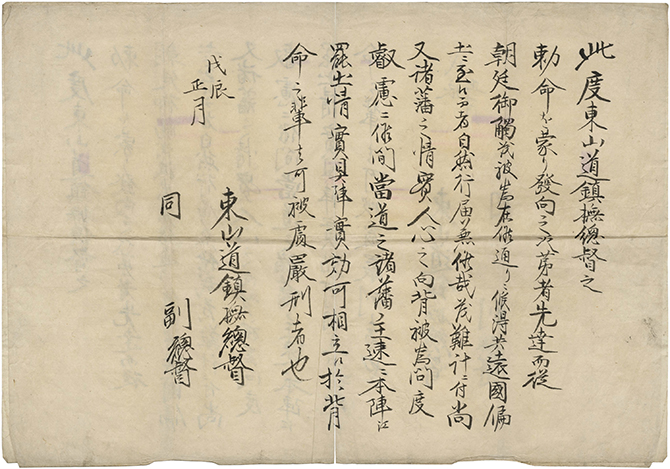 此度東山道鎮撫總督之
勅命ヲ蒙リ發向之次第者先達而從
朝廷御觸茂被為在候通リニ候得共遠國偏
土ニ至候而者自然行届無候哉茂難計ニ付尚
又諸藩之情實人心之向背被為問度
叡慮ニ候間當道之諸藩之主速ニ本陣江
罷出情實具陳實効可相立候於背
命之輩者可被處嚴刑者也
戊辰
正月
東山道鎮撫總督
同 副總督